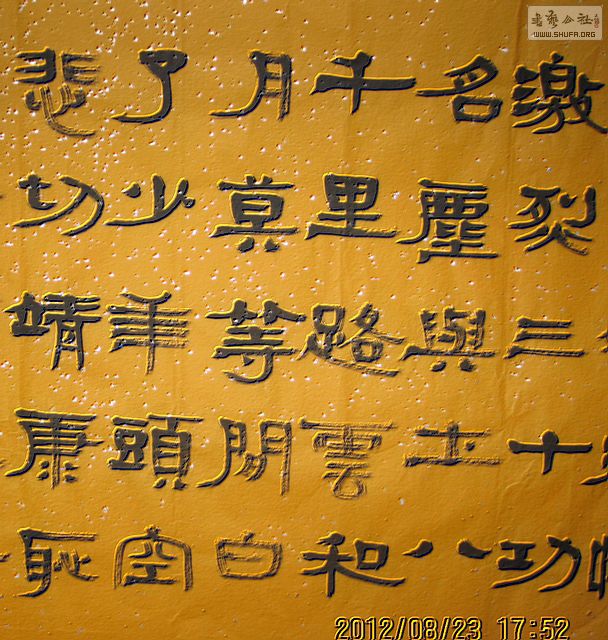 書藝公社
WWW.SHUFA.ORG
激烈三十功
名塵與土八
千里路雲和
月莫等閒白
了少年頭空
悲切靖康恥
2012/08/23 17:52